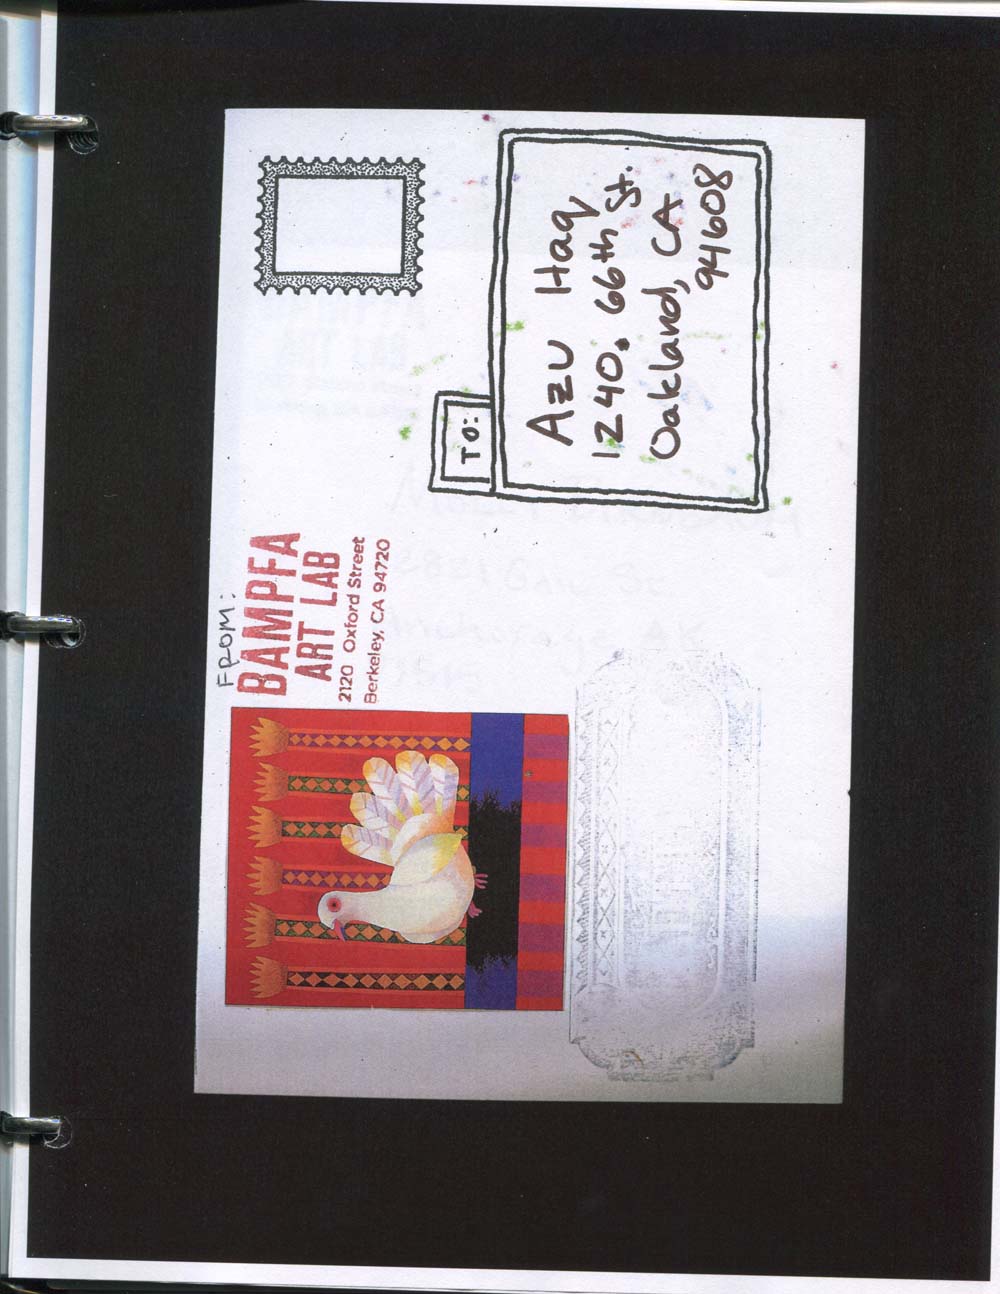 FROM:
BAMPFA
ART LAB
2120 Oxford Street
Berkeley, CA 94720
TO:
Azu Haq
1240. 66th St.
Oakland, CA
94608